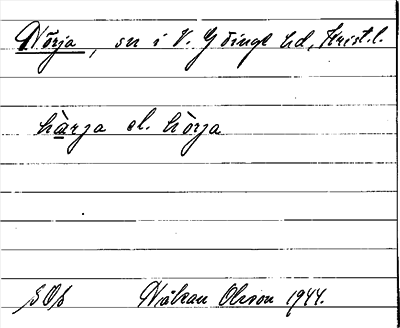 Hörja, sn i V. Göinge hd, Krist. l.
hàrja el. hòrja
SOS Håkan Olsson 1944.